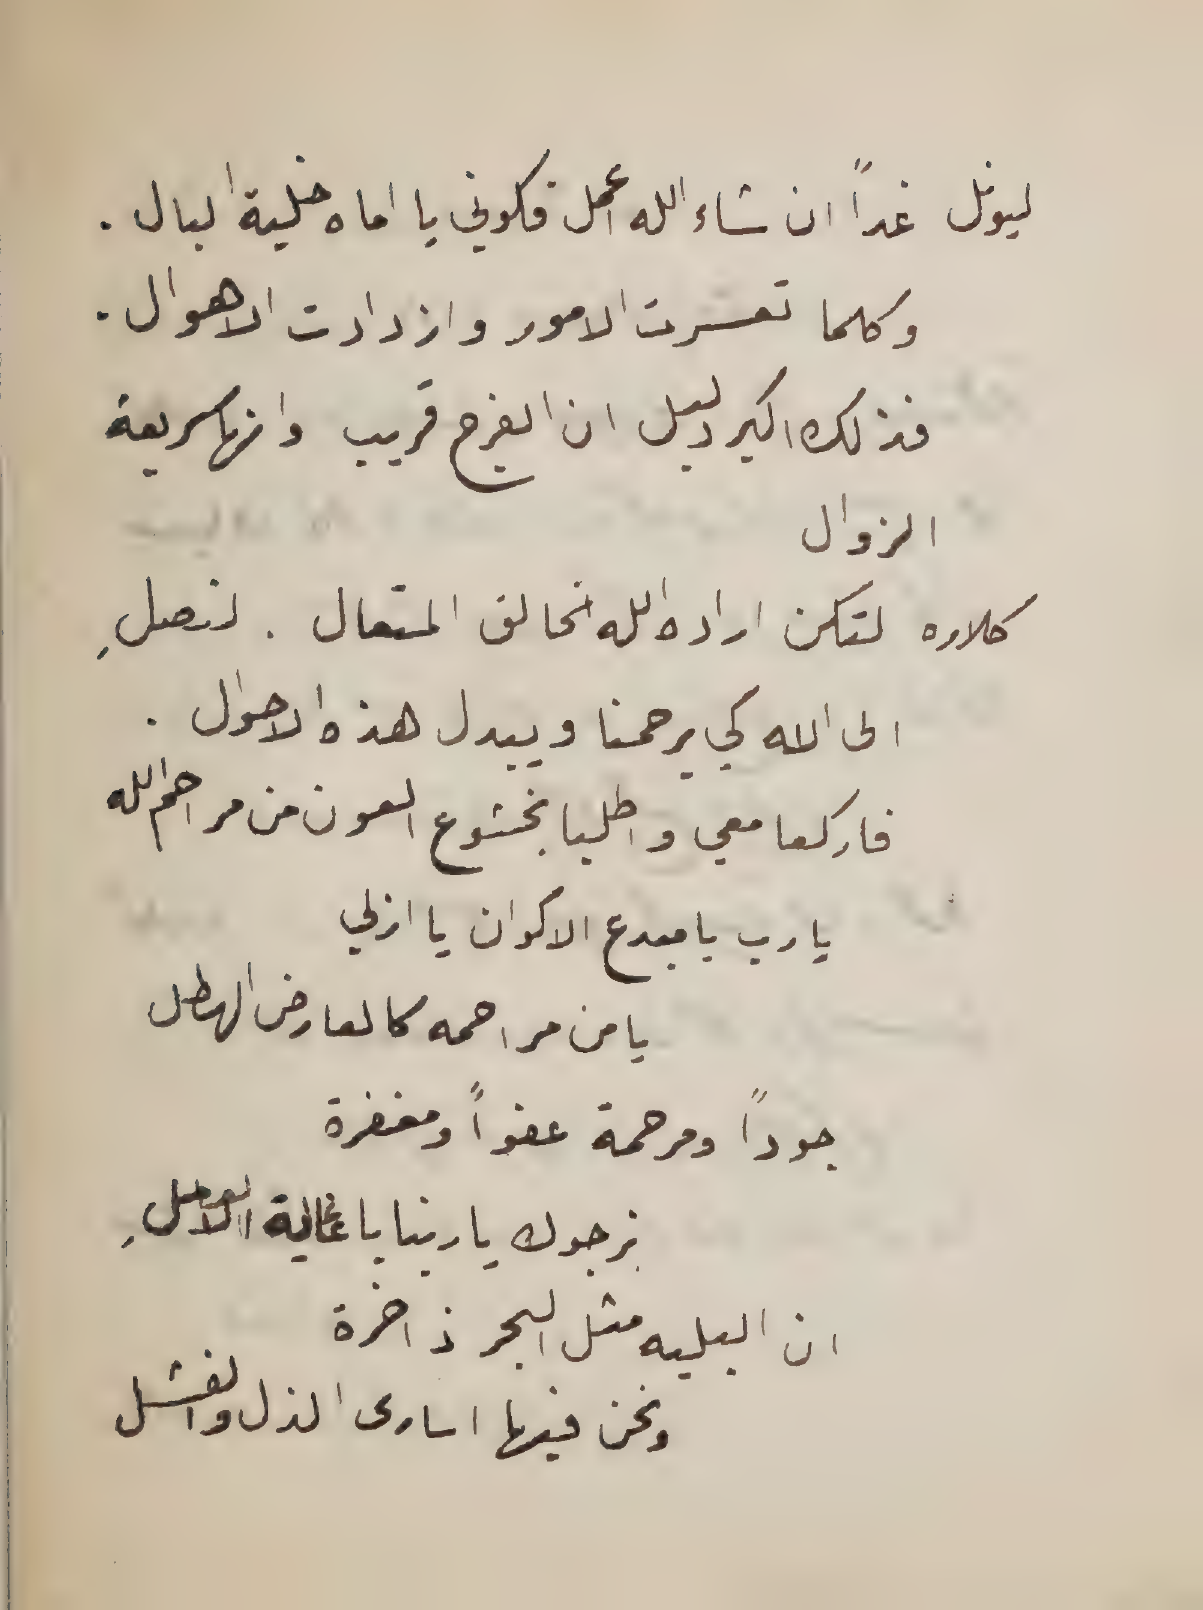 ليونل غداً ان شاء الله اعمل فكوني يا اماه خلية البال .
وكلما تعسرت الامور وازدادت الاهوال .
فذلك اكبر دليل ان الفرج قريب وانها سريعة
الزوال
كلاره لتكن اراده الله الخالق المتعال . لنصلِ
الى الله كي يرحمنا ويبدل هذه الاحوال .
فاركعا معي واطلبا بخشوع العون من مراحم الله
يا رب يا مبدع الاكوان يا ازلي
يا من مراحمه كالعارض الهطل
جوداً ومرحمة عفواً ومغفرة
نرجوك يا ربنا يا غاية الاملِ
ان البليه مثل البحر ذاخرة
ونحن فيها اسارى الذل والفشل